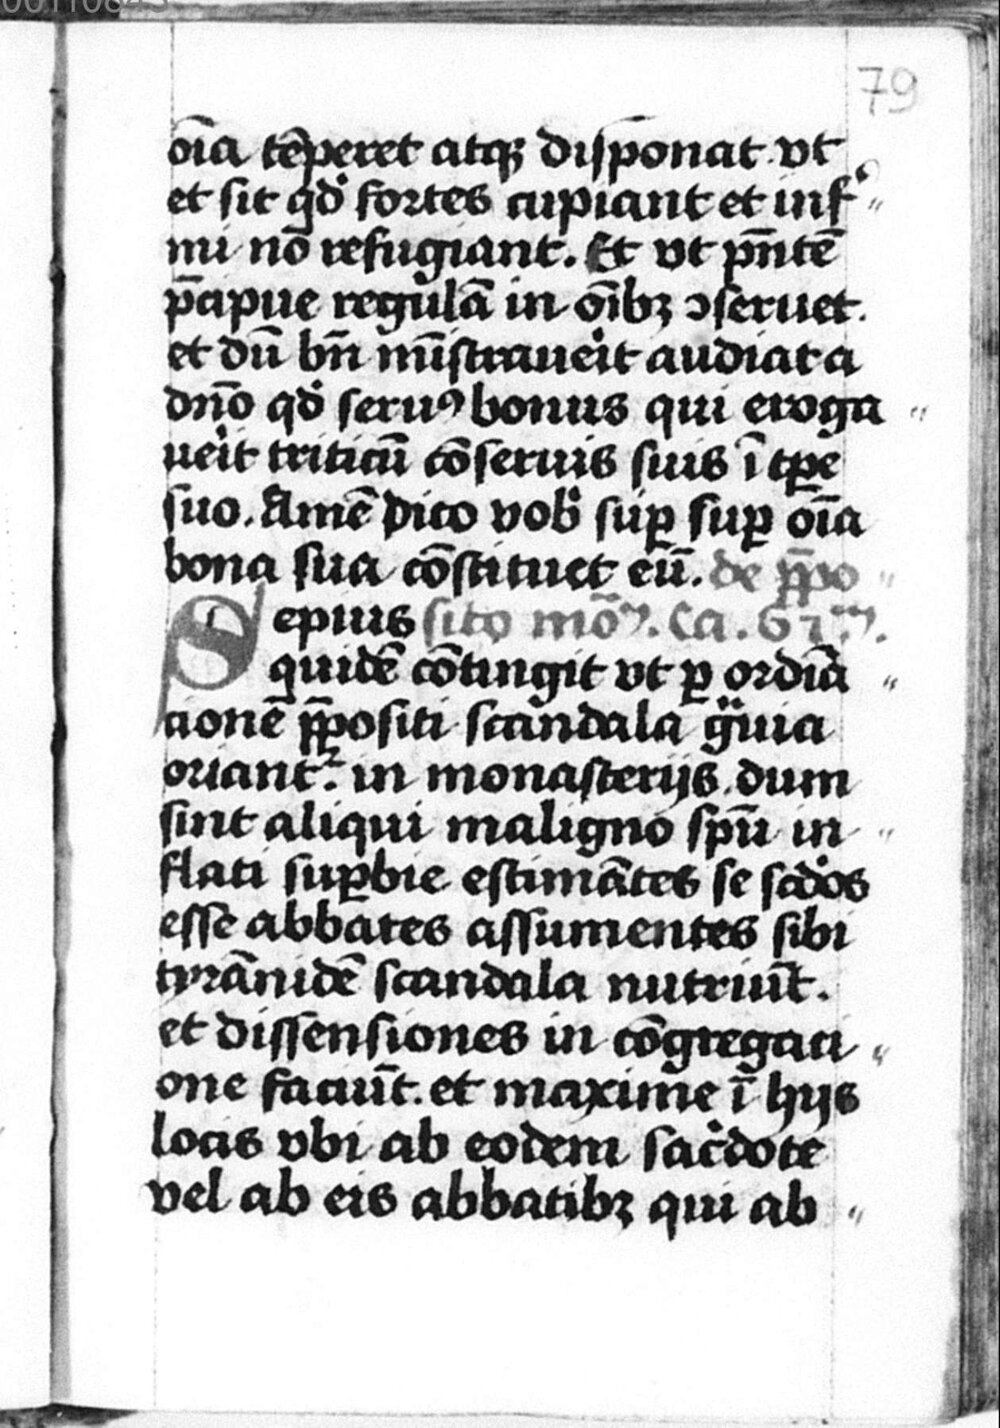 79
oīa tēperet atqꝫ disponat vt
et sit qdͦ fortes cupiant et inf
mi nō refugiant. Et vt pn̄tē
p̄cipue regulā in oībꝫ ꝯseruet.
et dū bn̄ mīstrauerit audiat a
dnō qdͦ seruꝰ bonus qui eroga
uerit triticū cōseruis suis ī tꝑe
suo. Amē dico vob suꝑ suꝑ oīa
bona sua cōstituet eū. de p̄po
Sepius sito mōʳ. Ca. 61ᵐ.
quidē cōtingit vt ꝑ ordīa
cionē p̄positi scandala gͣuia
oriantᷣ in monasterijs. dum
sint aliqui maligno spū in
flati suꝑbie estimātes se scd̄os
esse abbates assumentes sibi
tyrānidē scandala nutriūt.
et dissensiones in cōgregaci
one faciūt. et maxime ī hijs
locis vbi ab eodem sac̄dote
vel ab eis abbatibꝫ qui ab